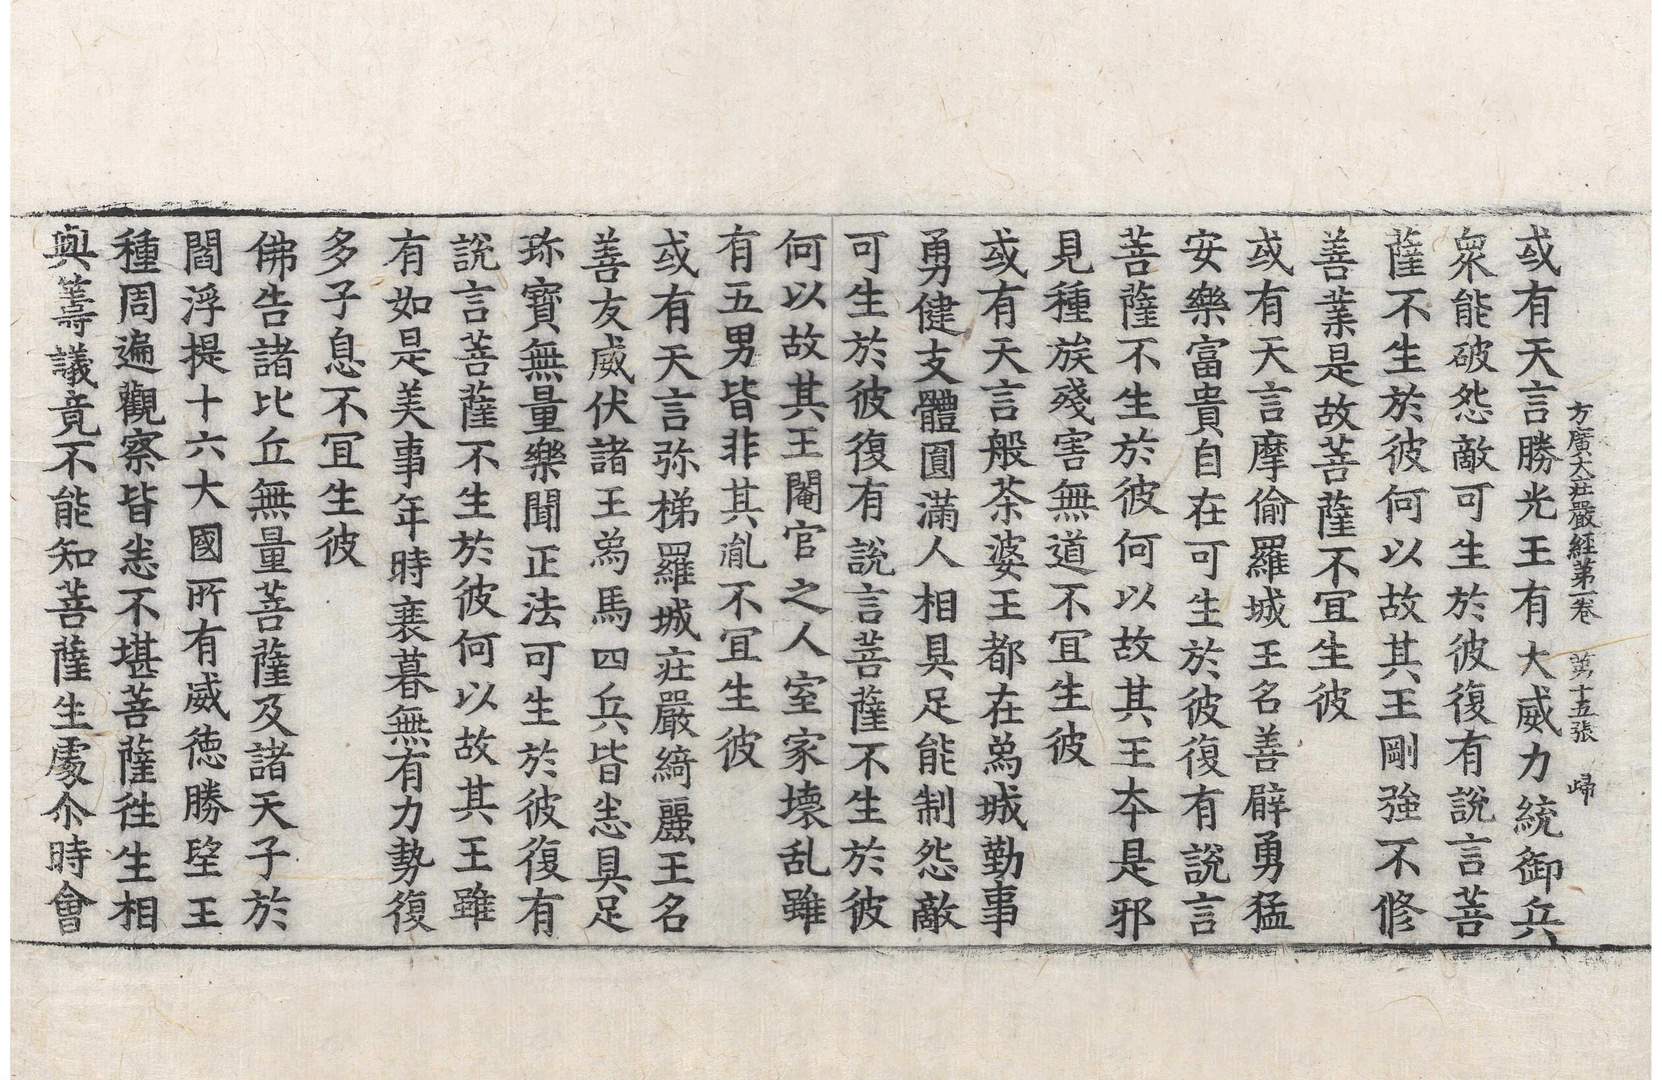 方廣大莊嚴經第一卷 第十五張 歸
或有天言勝光王有大威力統御兵
衆能破怨敵可生於彼復有說言菩
薩不生於彼何以故其王剛強不修
善業是故菩薩不宜生彼
或有天言摩偷羅城王名善臂勇猛
安樂富貴自在可生於彼復有說言
菩薩不生於彼何以故其王本是邪
見種族殘害無道不宜生彼
或有天言般茶婆王都在爲城勤事
勇健支體圓滿人相具足能制怨敵
可生於彼復有說言菩薩不生於彼
何以故其王閹官之人室家壞乱雖
有五男皆非其胤不宜生彼
或有天言弥梯羅城莊嚴綺麗王名
善友威伏諸王爲馬四兵皆悉具足
珎寶無量樂聞正法可生於彼復有
說言菩薩不生於彼何以故其王雖
有如是美事年時衰暮無有力勢復
多子息不宜生彼
佛告諸比丘無量菩薩及諸天子於
閻浮提十六大國所有威德勝望王
種周遍觀察皆悉不堪菩薩往生相
與籌議竟不能知菩薩生處尒時會